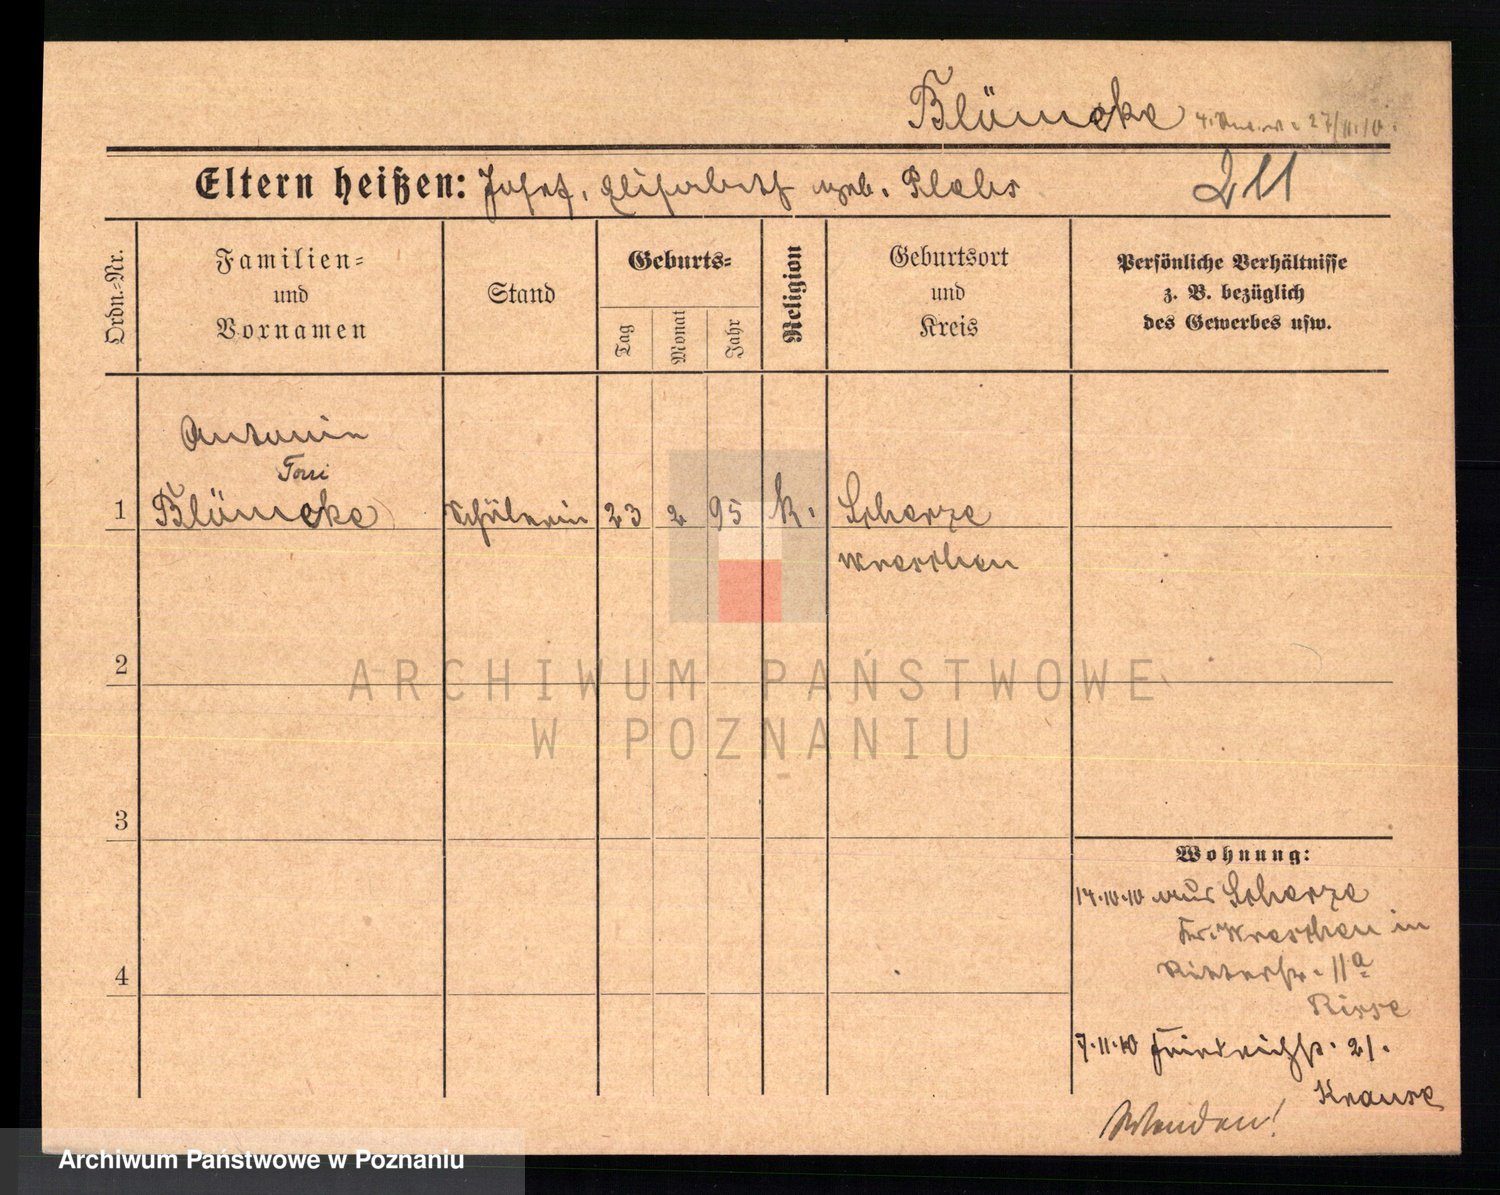 Blümcke 27/11.10.
Eltern heißen: Josef, Elisabeth geb. Plaess
211
Ordn.-Nr.
Familien-
und
Vornamen
Stand
Geburts-
Tag
Monat
Jahr
Religion
Geburtsort
und
Kreis
Persönliche Verhältnisse
z. B. bezüglich
des Gewerbes usw.
Antonie
Toni
1 Blümcke Schülerin 23 2 95 k. Scherze
Wreschen
2
ARCHIWUM PAŃSTWOWE
W POZNANIU
3
Wohnung:
14.10.10 aus Scherze
Kr. Wreschen in
4 Ritterstr. 11a
Risse
7.11.10 Friedrichstr. 21.
Krause
Wenden!
Archiwum Państwowe w Poznaniu